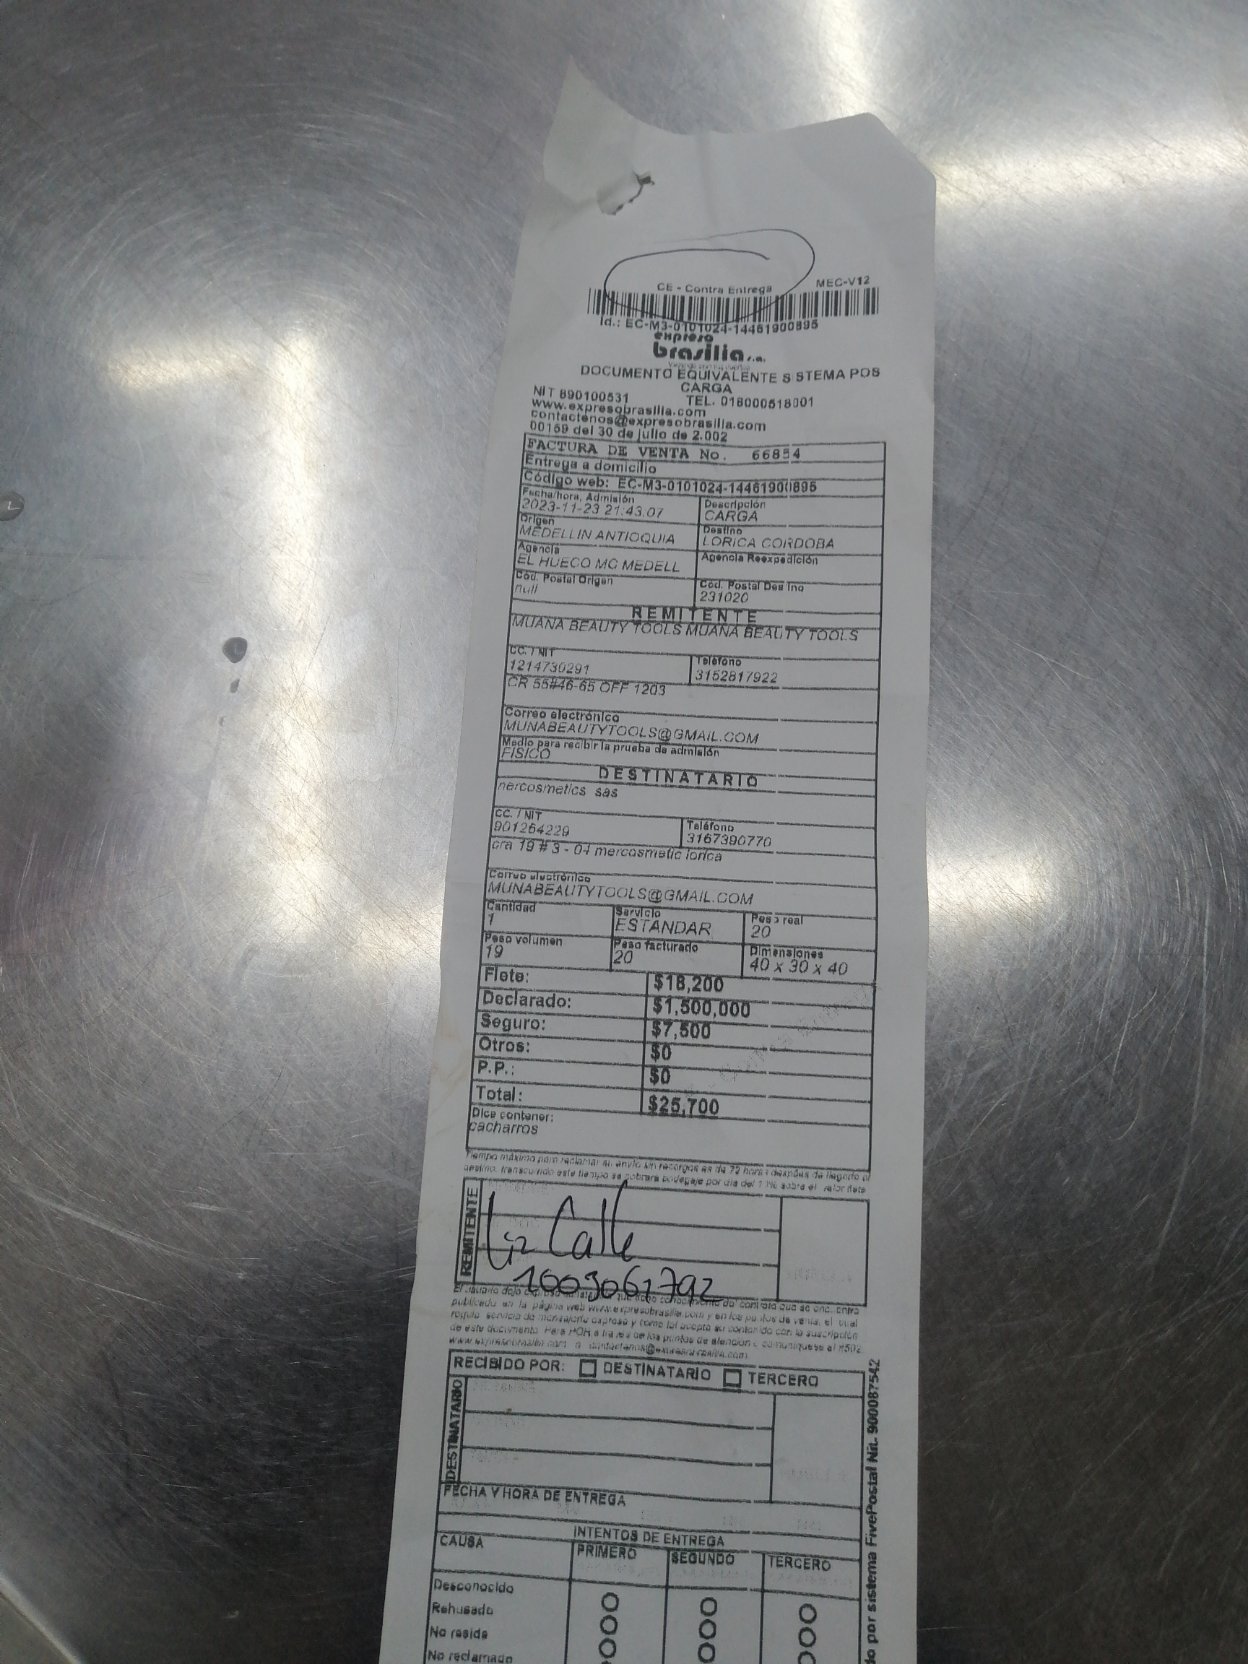 CE - Contra Entrega MEC-V12
Id.: EC-M3-0101024-14461900895
expreso
brasilia s.a.
DOCUMENTO EQUIVALENTE SISTEMA POS
CARGA
NIT 890100531 TEL. 018000518001
www.expresobrasilia.com
contactenos@expresobrasilia.com
00159 del 30 de julio de 2.002
FACTURA DE VENTA No. 66854
Entrega a domicilio
Código web: EC-M3-0101024-14461900895
Fecha/hora, Admisión Descripción
2023-11-23 21:43.07 CARGA
Origen Destino
MEDELLIN ANTIOQUIA LORICA CORDOBA
Agencia Agencia Reexpedición
EL HUECO MC MEDELL
Cod. Postal Origen Cod. Postal Destino
null 231020
REMITENTE
MUANA BEAUTY TOOLS MUANA BEAUTY TOOLS
CC. / NIT Teléfono
1214730291 3152817922
CR 55#46-65 OFF 1203
Correo electrónico
MUNABEAUTYTOOLS@GMAIL.COM
Medio para recibir la prueba de admisión
FISICO
DESTINATARIO
nercosmetics sas
CC. / NIT Teléfono
901264229 3167390770
cra 19 # 3 - 04 mercosmetic lorica
Correo electrónico
MUNABEAUTYTOOLS@GMAIL.COM
Cantidad Servicio Peso real
1 ESTANDAR 20
Peso volumen Peso facturado Dimensiones
19 20 40 x 30 x 40
Flete: $18,200
Declarado: $1,500,000
Seguro: $7,500
Otros: $0
P.P.: $0
Total: $25,700
Dice contener:
cacharros
Tiempo máximo para reclamar su envío sin recargos es de 72 horas después de llegado al
destino, transcurrido este tiempo se cobrara bodegaje por día del 1% sobre el valor flete
REMITENTE
Liz Calle
1003061792
publicado en la página web www.expresobrasilia.com y en los puntos de venta, el cual
regula servicio de mensajería expresa y como tal acepto su contenido con la suscripción
de este documento. Para PQR a través de los puntos de atención o comuníquese al #502
www.expresobrasilia.com o contactenos@expresobrasilia.com
RECIBIDO POR: DESTINATARIO TERCERO
DESTINATARIO
FECHA Y HORA DE ENTREGA
INTENTOS DE ENTREGA
CAUSA PRIMERO SEGUNDO TERCERO
Desconocido
Rehusado
No reside
No reclamado
do por sistema FivePostal Nit. 900087542